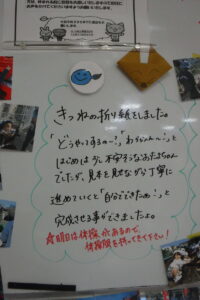 きつねの折り紙をしました。
「どうやってするの〜?」「わからん〜!」と
はじめは少し不安そうなおたまちゃん
でしたが、見本を見ながら丁寧に
進めていくと「自分でできたぁ〜!」と
完成させる事ができましたよ。
☆明日は体操があるので、
体操服を持ってきて下さい!